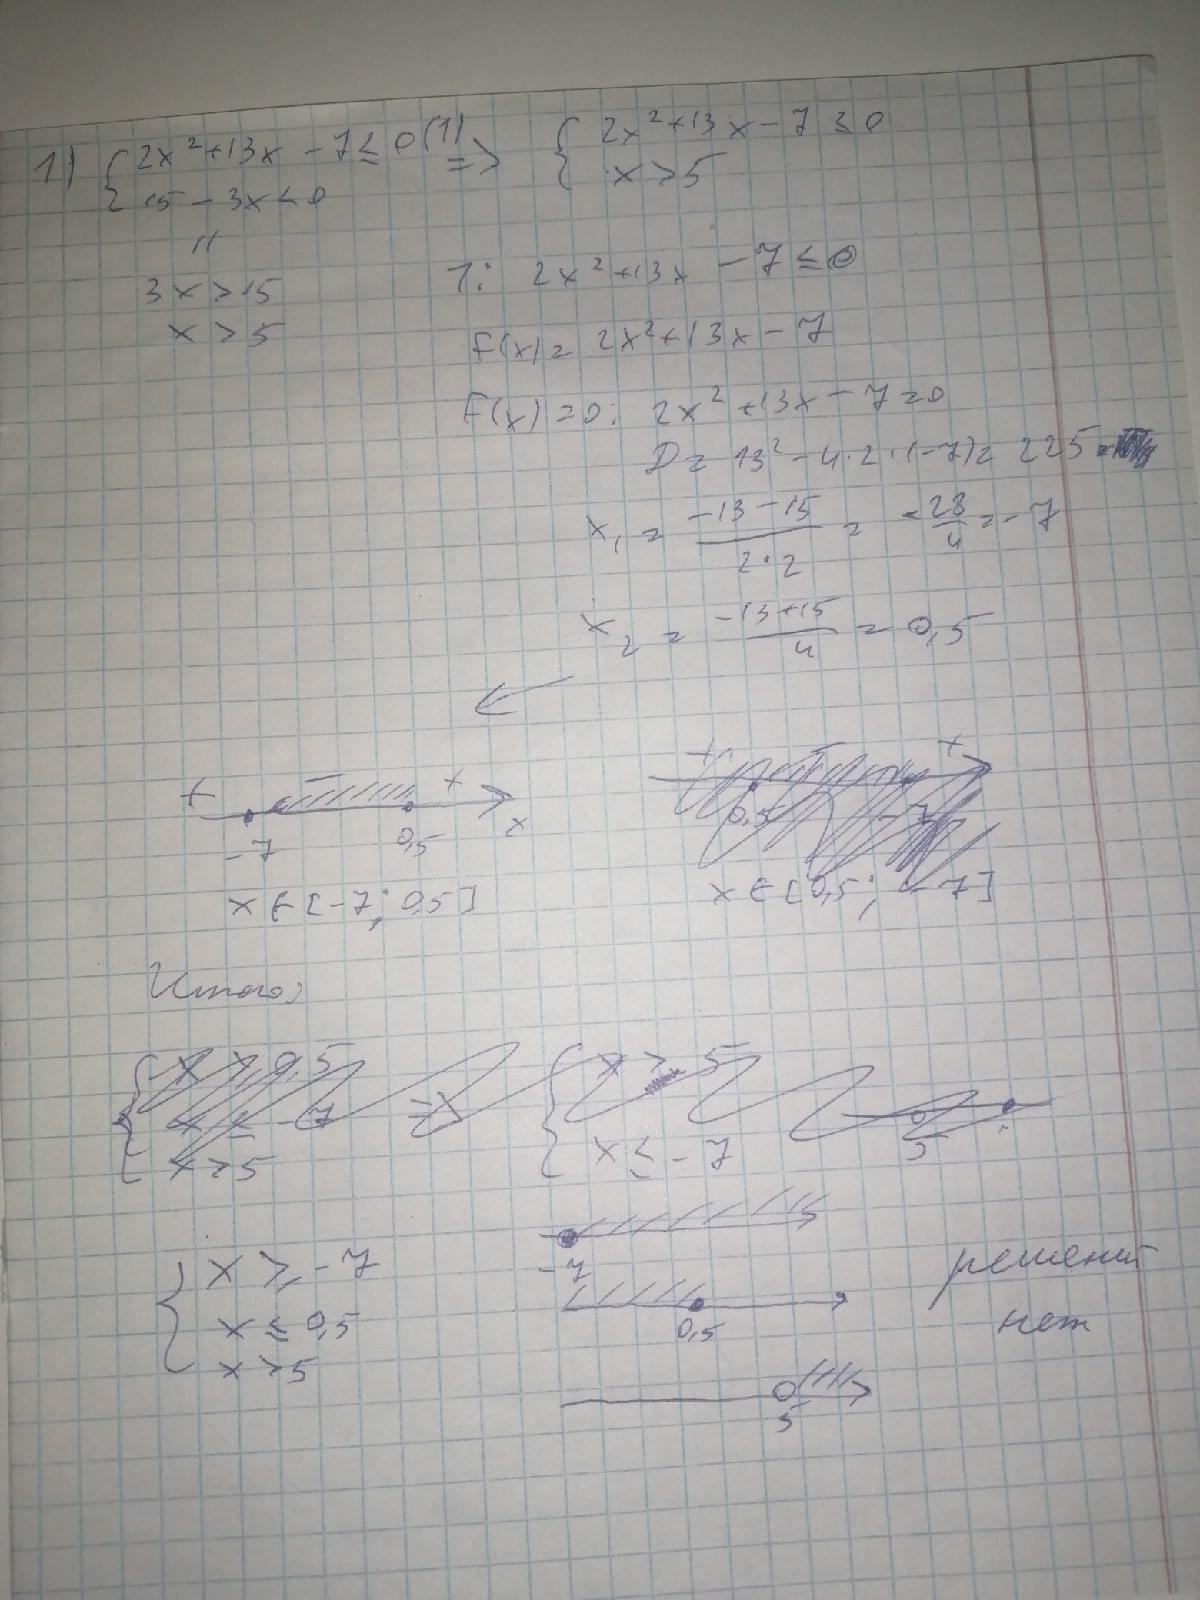 1) { 2x² + 13x - 7 ≤ 0 (1) => { 2x² + 13x - 7 ≤ 0
15 - 3x < 0 x > 5
3x > 15
x > 5
1: 2x² + 13x - 7 ≤ 0
F(x) = 2x² + 13x - 7
F(x) = 0: 2x² + 13x - 7 = 0
D = 13² - 4·2·(-7) = 225
x₁ = (-13 - 15)/(2·2) = -28/4 = -7
x₂ = (-13 + 15)/4 = 0,5
+ - + x
-7 0,5
x ∈ [-7; 0,5]
+ - +
0,5 -7
x ∈ [0,5; -7]
Итого:
{ x ≥ 0,5
x ≤ -7 =>
x > 5
{ x > 5
x ≤ -7
5
{ x ≥ -7
x ≤ 0,5
x > 5
-7
0,5
5
решений
нет